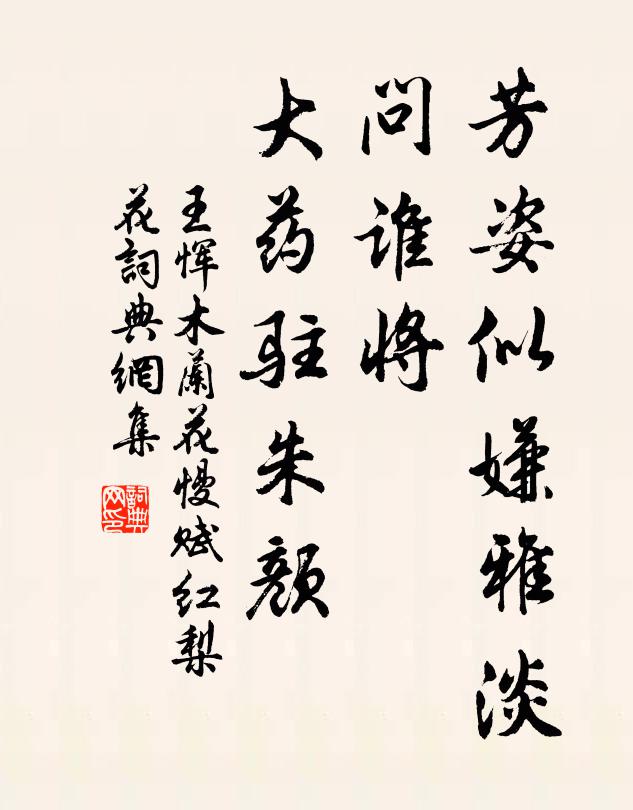 芳姿似嫌雅淡
问谁将
大药驻朱颜
王恽木蘭花慢赋红梨
花詞典網集
詞典
网印